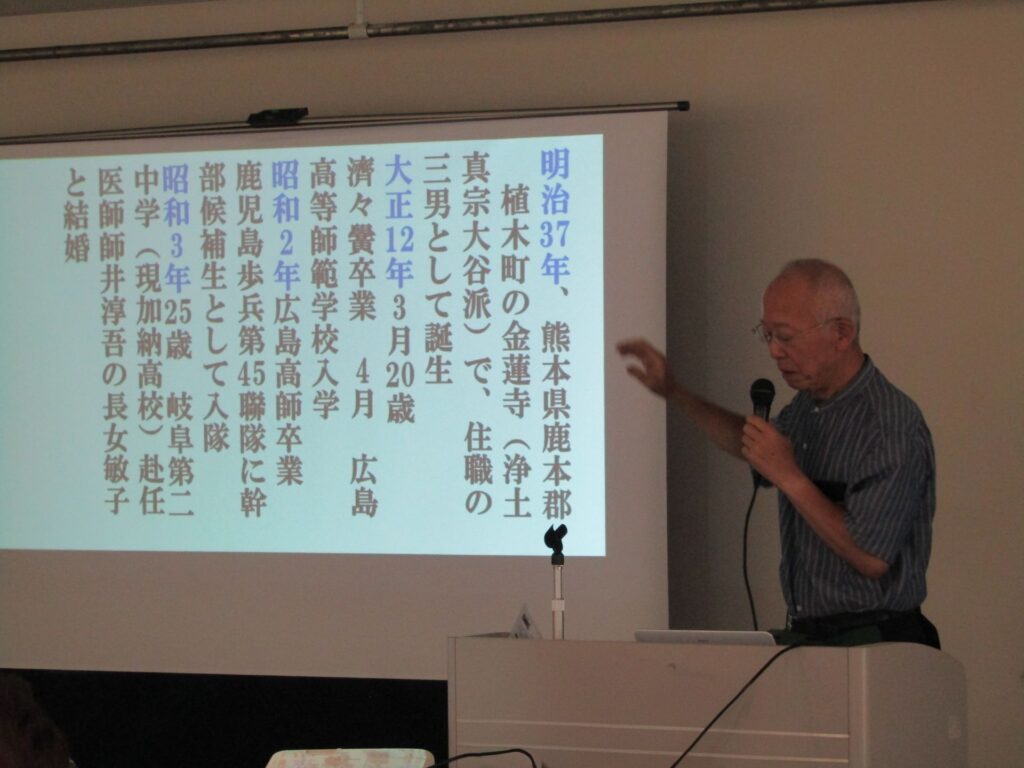 明治37年、熊本県鹿本郡
植木町の金蓮寺（浄土
真宗大谷派）で、住職の
三男として誕生
大正12年3月20歳
濟々黌卒業　4月　広島
高等師範学校入学
昭和2年広島高師卒業
鹿児島歩兵第45聯隊に幹
部候補生として入隊
昭和3年25歳　岐阜第二
中学（現加納高校）赴任
医師師井淳吾の長女敏子
と結婚